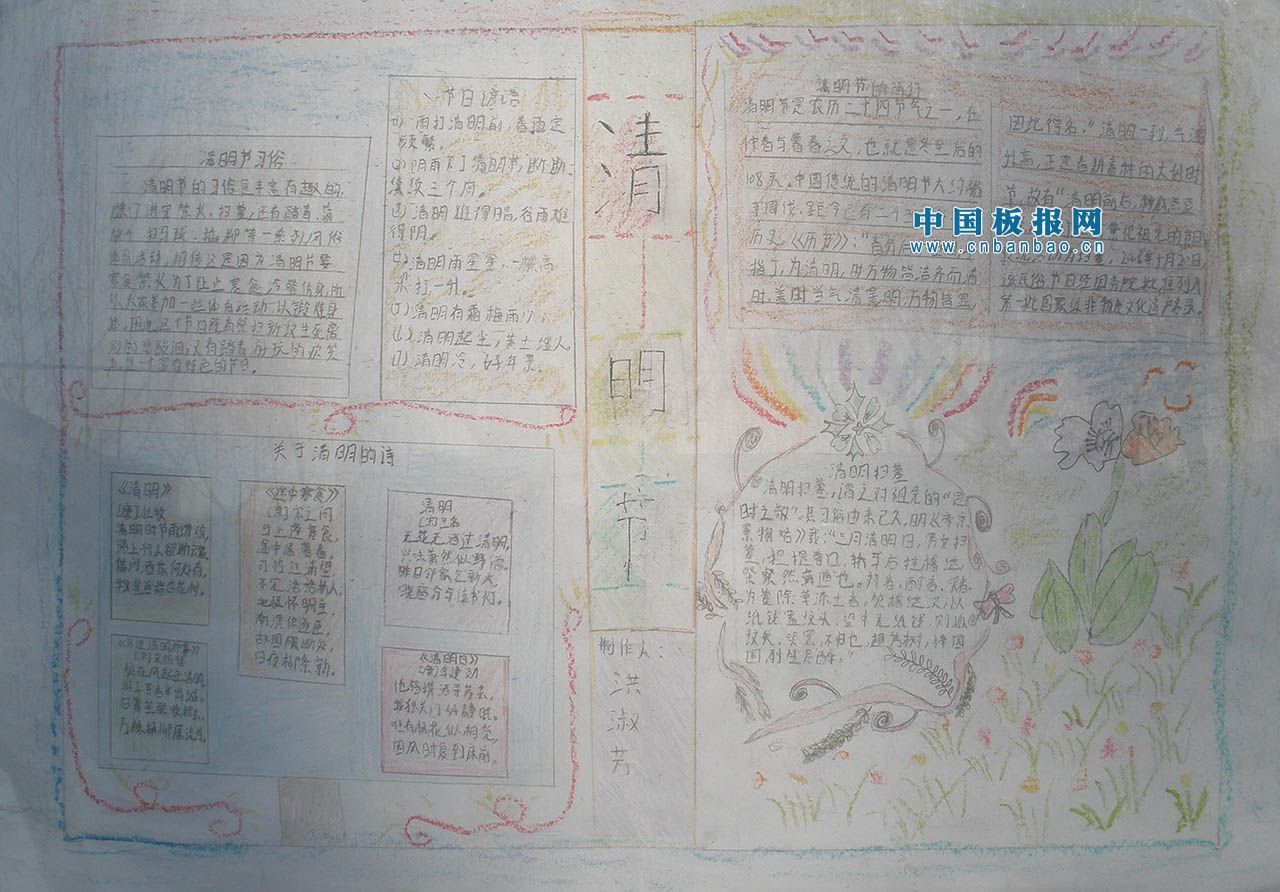 清明节习俗
清明节的习俗是丰富有趣的
除了讲究禁火、扫墓,还有踏青、荡
秋千、打马球、插柳等一系列风俗
体育活动,相传这是因为清明节要
寒食禁火,为了防止寒食冷餐伤身,所
以大家参加一些体育运动,以锻炼身
体,因此,这个节日既有祭扫新坟生死离
别的悲酸泪,又有踏青游玩的欢笑
声,是一个富有特色的节日。
节日谚语
(1)雨打清明前,春雨定
频繁。
(2)阴雨下了清明节,断断
续续三个月。
(3)清明难得晴,谷雨难
得阴。
(4)清明雨星星,一棵高
粱打一升。
(5)清明有霜梅雨少。
(6)清明起尘,黄土埋人。
(7)清明冷,好年景。
关于清明的诗
《清明》
[唐]杜牧
清明时节雨纷纷,
路上行人欲断魂。
借问酒家何处有,
牧童遥指杏花村。
《途中寒食》
[唐]宋之问
马上逢寒食,
途中属暮春。
可怜江浦望,
不见洛桥人。
北极怀明主,
南溟作逐臣。
故园肠断处,
日夜柳条新。
清明
无花无酒过清明,
兴味萧然似野僧。
昨日邻家乞新火,
晓窗分与读书灯。
梨花风起正清明,
游子寻春半出城。
日暮笙歌收拾去,
万株杨柳属流莺。
《清明日》
他皆携酒寻芳去,
我独关门好静眠。
唯有杨花似相觅,
因风时复到床前。
清
明
节
制作人:
洪
淑
芳
清明节的流行
清明节是农历二十四节气之一,在
仲春与暮春之交,也就是冬至后的
108天。中国传统的清明节大约始
于周代,距今已有二千
历史。《历书》:“春分后
指丁,为清明,时万物皆洁齐而清
时,盖时当气清景明,万物皆显
因此得名。”清明一到,气温
升高,正是春耕春种的大好时
节,故有“清明前后,种瓜点豆
祭祀祖先的节日
该民俗节日经国务院批准列入
第一批国家级非物质文化遗产名录。
中国板报网
www.cnbanbao.cn
清明扫墓
清明扫墓,谓之对祖先的“思
时之敬”。其习俗由来已久,明《帝京
景物略》载:“三月清明日,男女扫
墓,担提尊榼,轿马后挂楮锭,
粲粲然满道也。拜者、酹者、哭者、
为墓除草添土者,焚楮锭次,以
纸钱置坟头。望中无纸钱,则孤
坟矣。哭罢,不归也,趋芳树,择园
圃,列坐尽醉。”